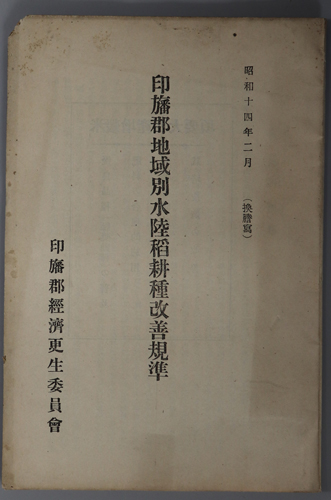 昭和十四年二月
（換謄寫）
印旛郡地域別水陸稻耕種改善規準
印旛郡經濟更生委員會